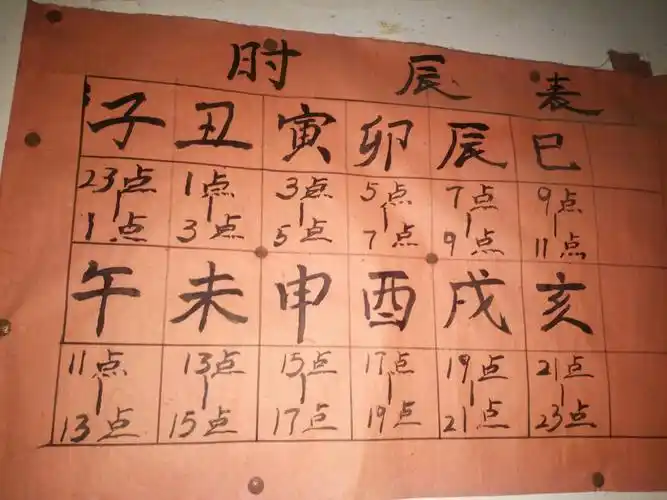 时 辰 表
子 丑 寅 卯 辰 巳
23点 1点 3点 5点 7点 9点
| | | | | |
1点 3点 5点 7点 9点 11点
午 未 申 酉 戌 亥
11点 13点 15点 17点 19点 21点
| | | | | |
13点 15点 17点 19点 21点 23点